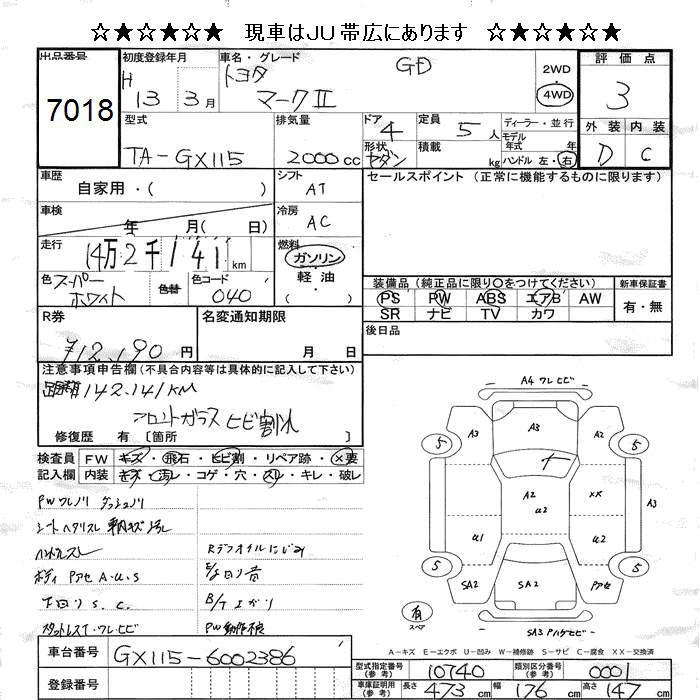 ☆★☆★☆ 現車はJU帯広にあります ☆★☆★☆
出品番号 7018
初度登録年月 H 13 3月
車名・グレード トヨタ マークII GD
2WD 4WD
評価点 3
外装 D 内装 C
型式 TA-GX115
排気量 2000cc
ドア 4 形状 セダン
定員 5人
積載 kg
ディーラー・並行
モデル年式 年
ハンドル 左・右
車歴 自家用・( )
シフト AT
セールスポイント (正常に機能するものに限ります)
車検 年 月( 日)
冷房 AC
走行 14万2千141km
燃料 ガソリン 軽油 ( )
色 スーパーホワイト 色替 色コード 040
装備品(純正品に限り○をつけてください)
PS PW ABS エアB AW
SR ナビ TV カワ
新車保証書 有・無
R券 ¥12,190円
名変通知期限 月 日
後日品
注意事項申告欄(不具合内容等は具体的に記入して下さい)
142,141KM
フロントガラスヒビ割れ
修復歴 有 〔箇所 〕
検査員記入欄 FW キズ・飛石・ヒビ割・リペア跡・×要
内装 キズ・汚れ・コゲ・穴・スレ・キレ・破レ
PWワレノリ ダッシュノリ
シートヘタリスレ
ハンドルスレ
Rデフオイルにじみ
ボディ A・U・S
下回りS.C.
スタットレスT・ワレ・ヒビ
PW動作不良
A4 ワレヒビ
A3 A3 A3
5 5
A2 U2 XX A3
U1 U2
5 5
SA2 SA2
有 スペア
A-キズ E-エクボ U-凹み W-補修跡 S-サビ C-腐食 XX-交換済
車台番号 GX115-6002386
登録番号
型式指定番号(参考) 10740 類別区分番号(参考) 0001
車庫証明用(参考) 長さ 473cm 幅 176cm 高さ 147cm